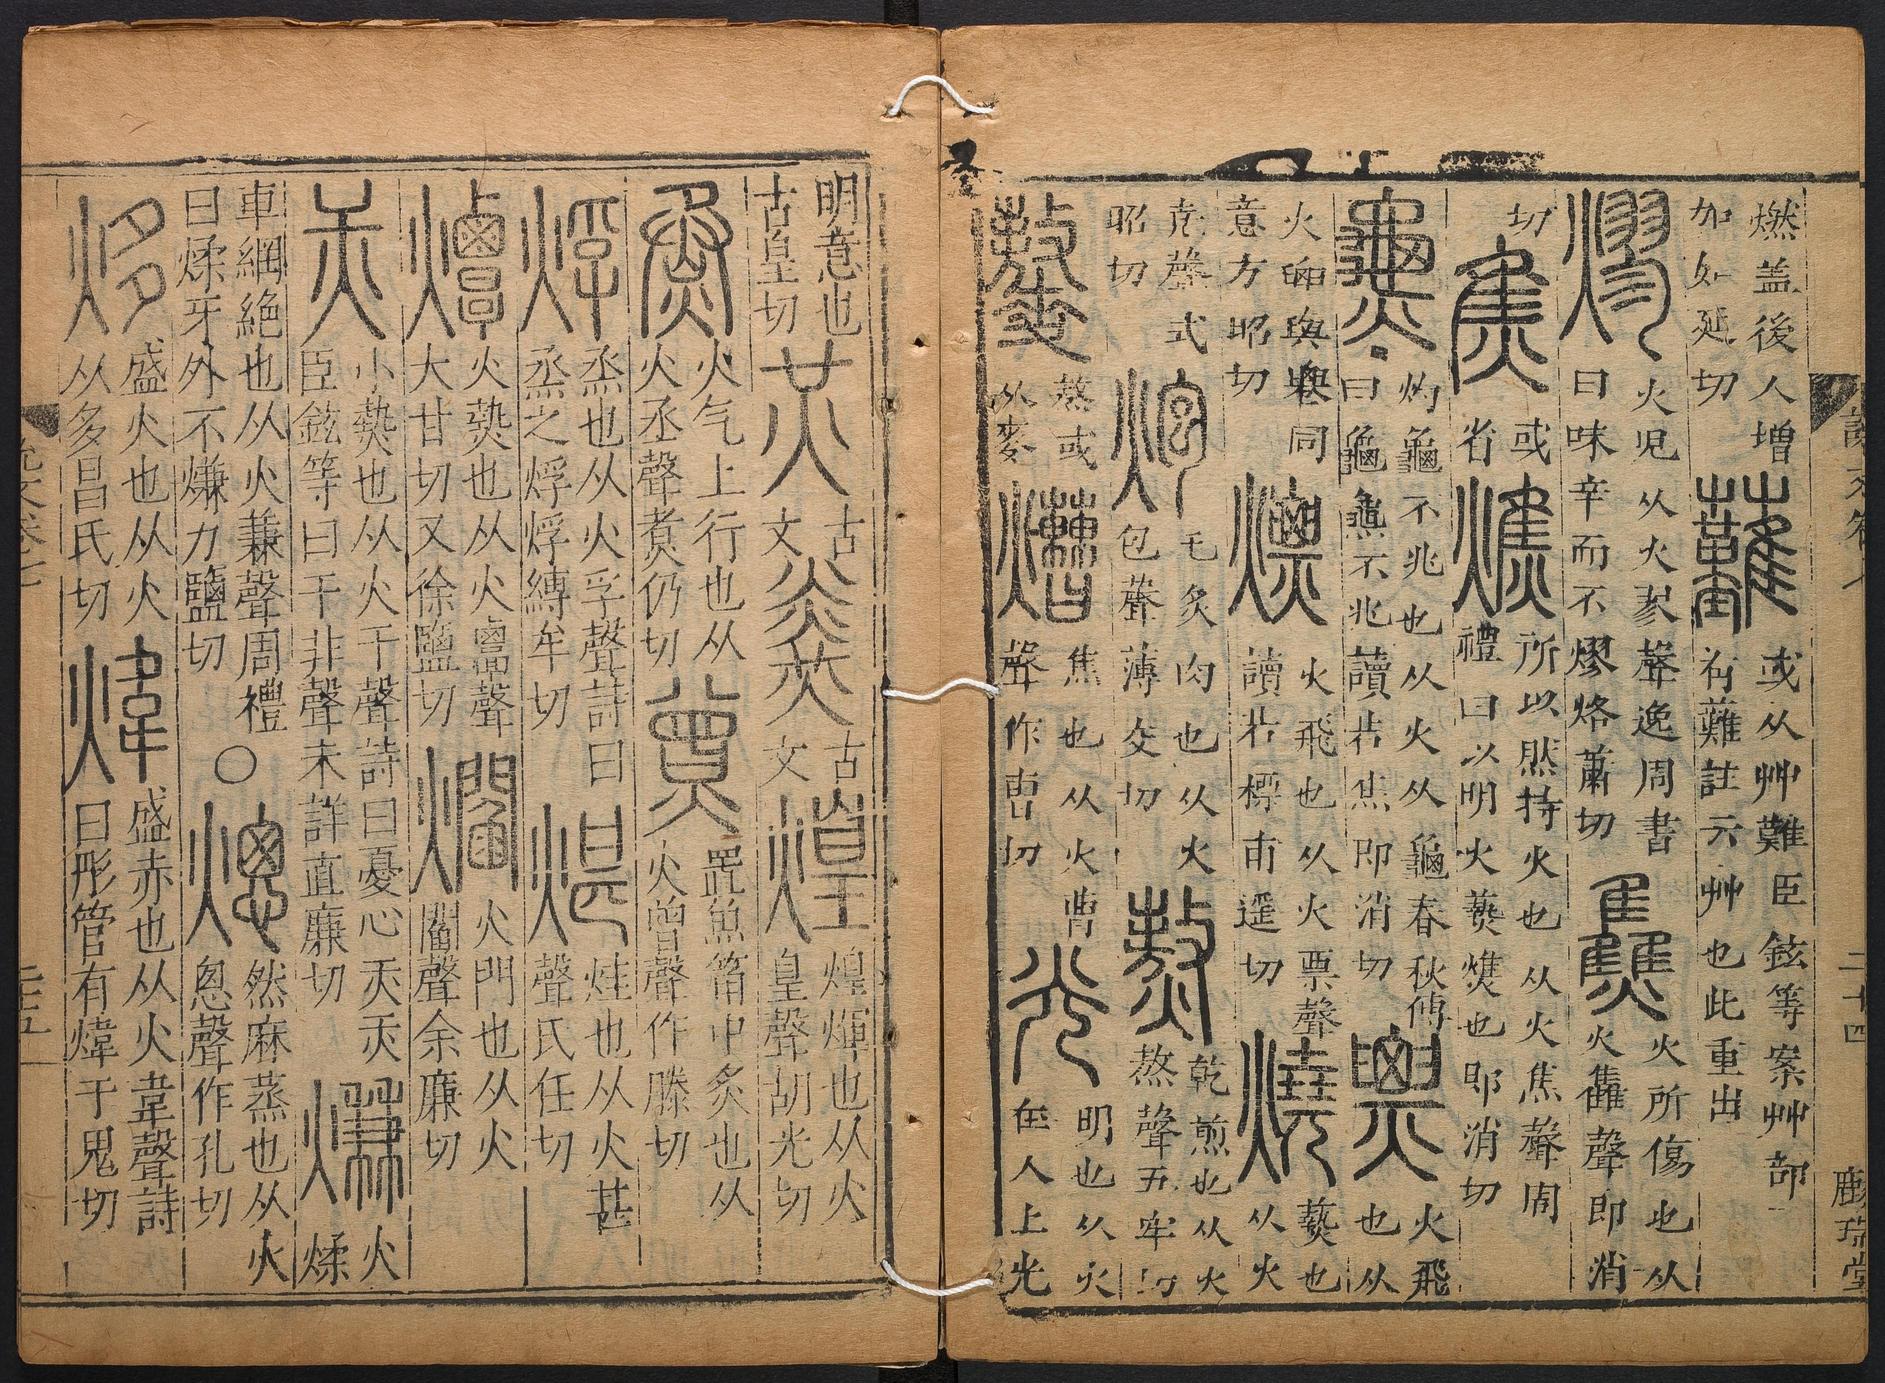 燃盖後人增
加如延切
䕼
或从艸難臣鉉等案艸部
有難註云艸也此重出
熮
火皃从火翏聲逸周書
曰味辛而不熮烙蕭切
火所傷也从
火雥聲即消
切
焦
或
省
燋
所以然持火也从火焦聲周
禮曰以明火爇燋也即消切
灼龜不兆也从火从龜春秋傳
曰龜不兆讀若焦即消切
火飛
也从
火與同
意方昭切
熛
火飛也从火票聲
讀若摽甫遙切
燒
爇也
从火
堯聲式
昭切
炮
毛炙肉也从火
包聲薄交切
熬
乾煎也从火
敖聲五牢切
熬或
从麥
焦也从火曹
聲作曹切
光
明也从火
在人上光
明意也
古皇切
古
文
古
文
煌
煌煇也从火
皇聲胡光切
烝
火气上行也从
火丞聲煑仍切
置魚筩中炙也从
火曾聲作滕切
烰
烝也从火孚聲詩曰
烝之烰烰縛牟切
煁
烓也从火甚
聲氏任切
火爇也从火聲
大甘切又徐鹽切
爓
火門也从火
閻聲余廉切
小爇也从火干聲詩曰憂心
臣鉉等曰干非聲未詳直廉切
熑
火
煣
車網絕也从火兼聲周禮
曰煣牙外不熑力鹽切
○
熜
然麻蒸也从火
悤聲作孔切
盛火也从火
从多昌氏切
煒
盛赤也从火韋聲詩
曰彤管有煒于鬼切
說文卷七
二十四
二十五